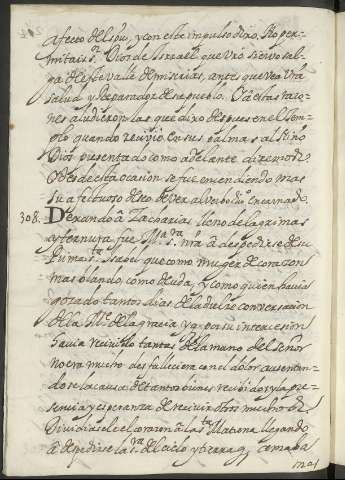 afecto del spu, y con este impulso dixo. No per-
mitais sr. Dios de Israel q. vro siervo sal-
ga de este valle de miserias, antes que vea vra
salud y Reparador de su pueblo. Y a estas raço-
nes aludieron las que dixo despues en el Tem-
plo quando reciuio en sus palmas al Niño
Dios presentado como adelante diremos.
Y desde esta ocasion se fue encendiendo mas
su afectuoso deseo de ver al verbo diuo. encarnado.
308. Dexando â Zacharias lleno de lagrimas
y ternura, fue Ma. sra. nra â despedirse de su
Prima sta. Isabel que como muger de coraçon
mas blando, como deuda, y como quien hauia
gozado tantos dias de la dulce conversacion
de la Me. de la gracia, y a por su intercesion
hauia reciuido tantas de la mano del Señor
no era mucho desfalleciera con el dolor ausentan-
dose la causa de tantos bienes recibidos y la pre-
sencia y esperanza de reciuir otros muchos.
Dividiasele el coraçon a la sta. Matrona llegando
â despedirse la sra. del cielo y tierra q. amaba
mas